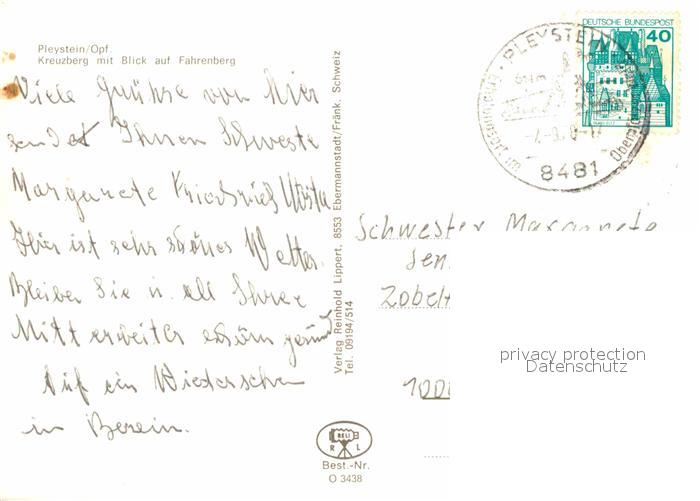 Pleystein/Opf.
Kreuzberg mit Blick auf Fahrenberg
Viele Grühse von Hier
sendet Ihnen Schweste
Margarete Friedrich
Hier ist sehr schönes Wetter.
Bleiben Sie u. all Ihree
Mitt erweiter schön gesund
Auf ein Wiedersehen
in Berein.
Verlag Reinhold Lippert, 8553 Ebermannstadt/Fränk. Schweiz
Tel. 09194/514
RELI
R L
Best.-Nr.
O 3438
DEUTSCHE BUNDESPOST
40
PLEYSTEIN
8481
Schwester Margarete
Sen
Zobelt
1000
privacy protection
Datenschutz